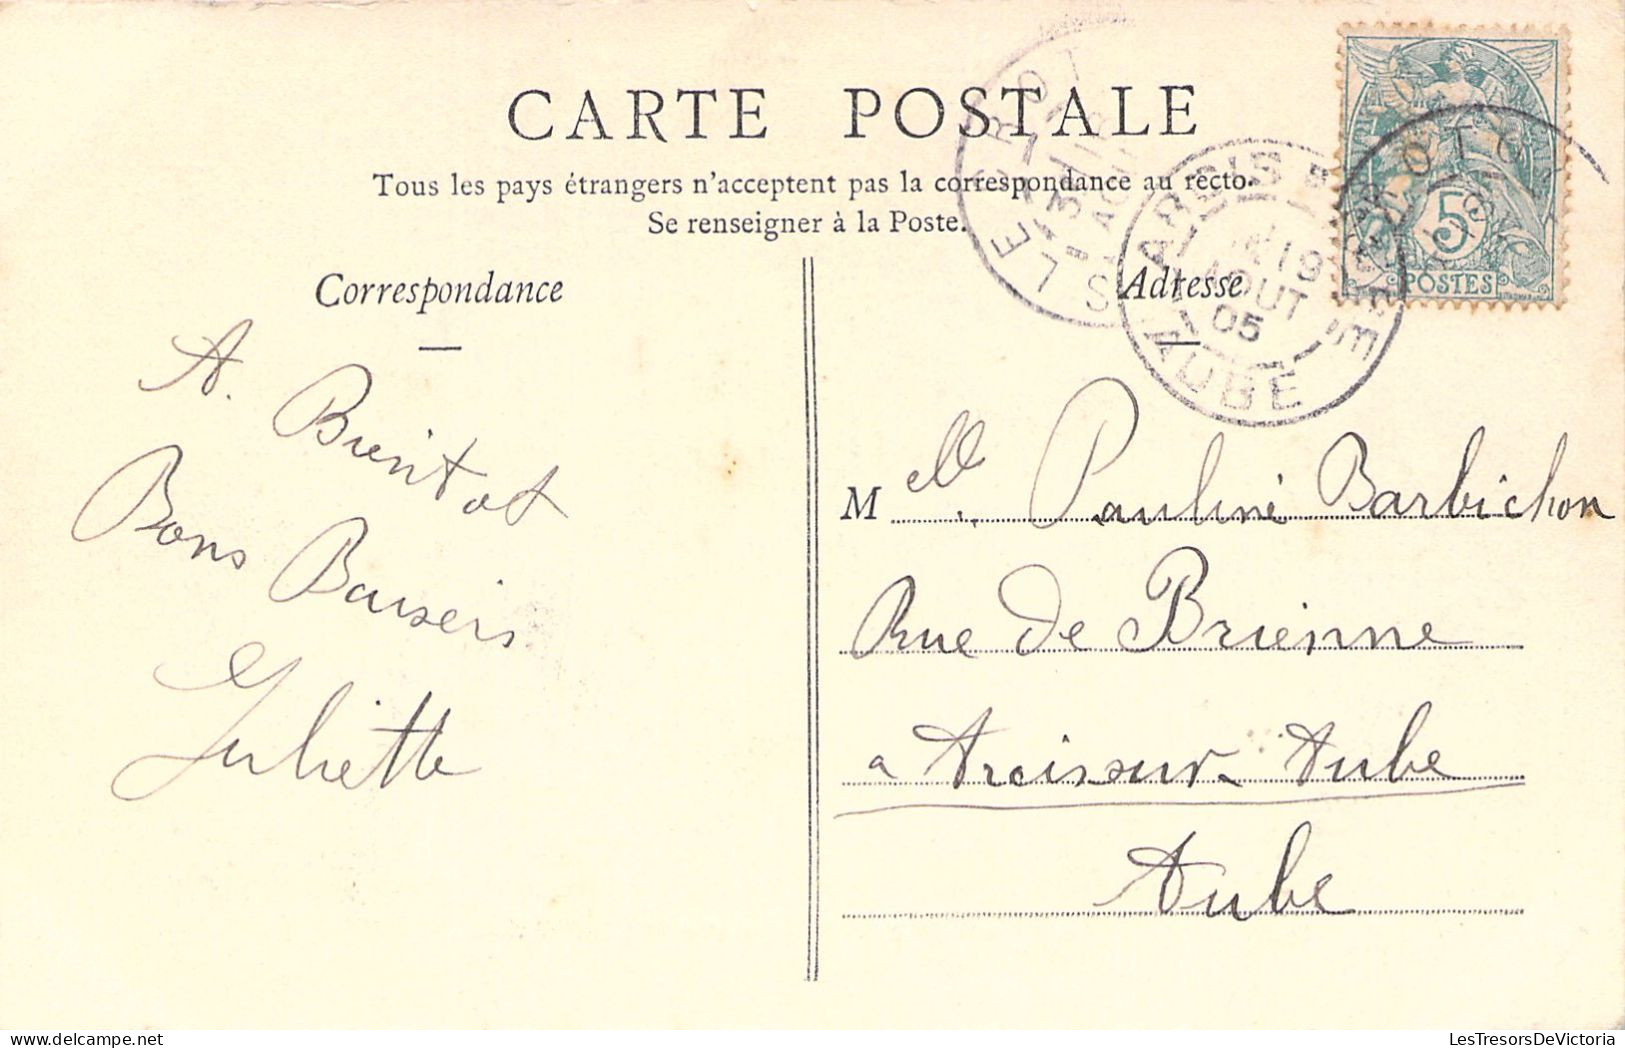 CARTE POSTALE
Tous les pays étrangers n'acceptent pas la correspondance au recto.
Se renseigner à la Poste.
LE CROTOY
ARCIS
AUBE
19
AOUT
05
5
POSTES
Correspondance
A. Bientot
Bons Baisers
Juliette
Adresse
M elle Pauline Barbichon
Rue de Brienne
a Arcis sur Aube
Aube
LesTresorsDeVictoria.com